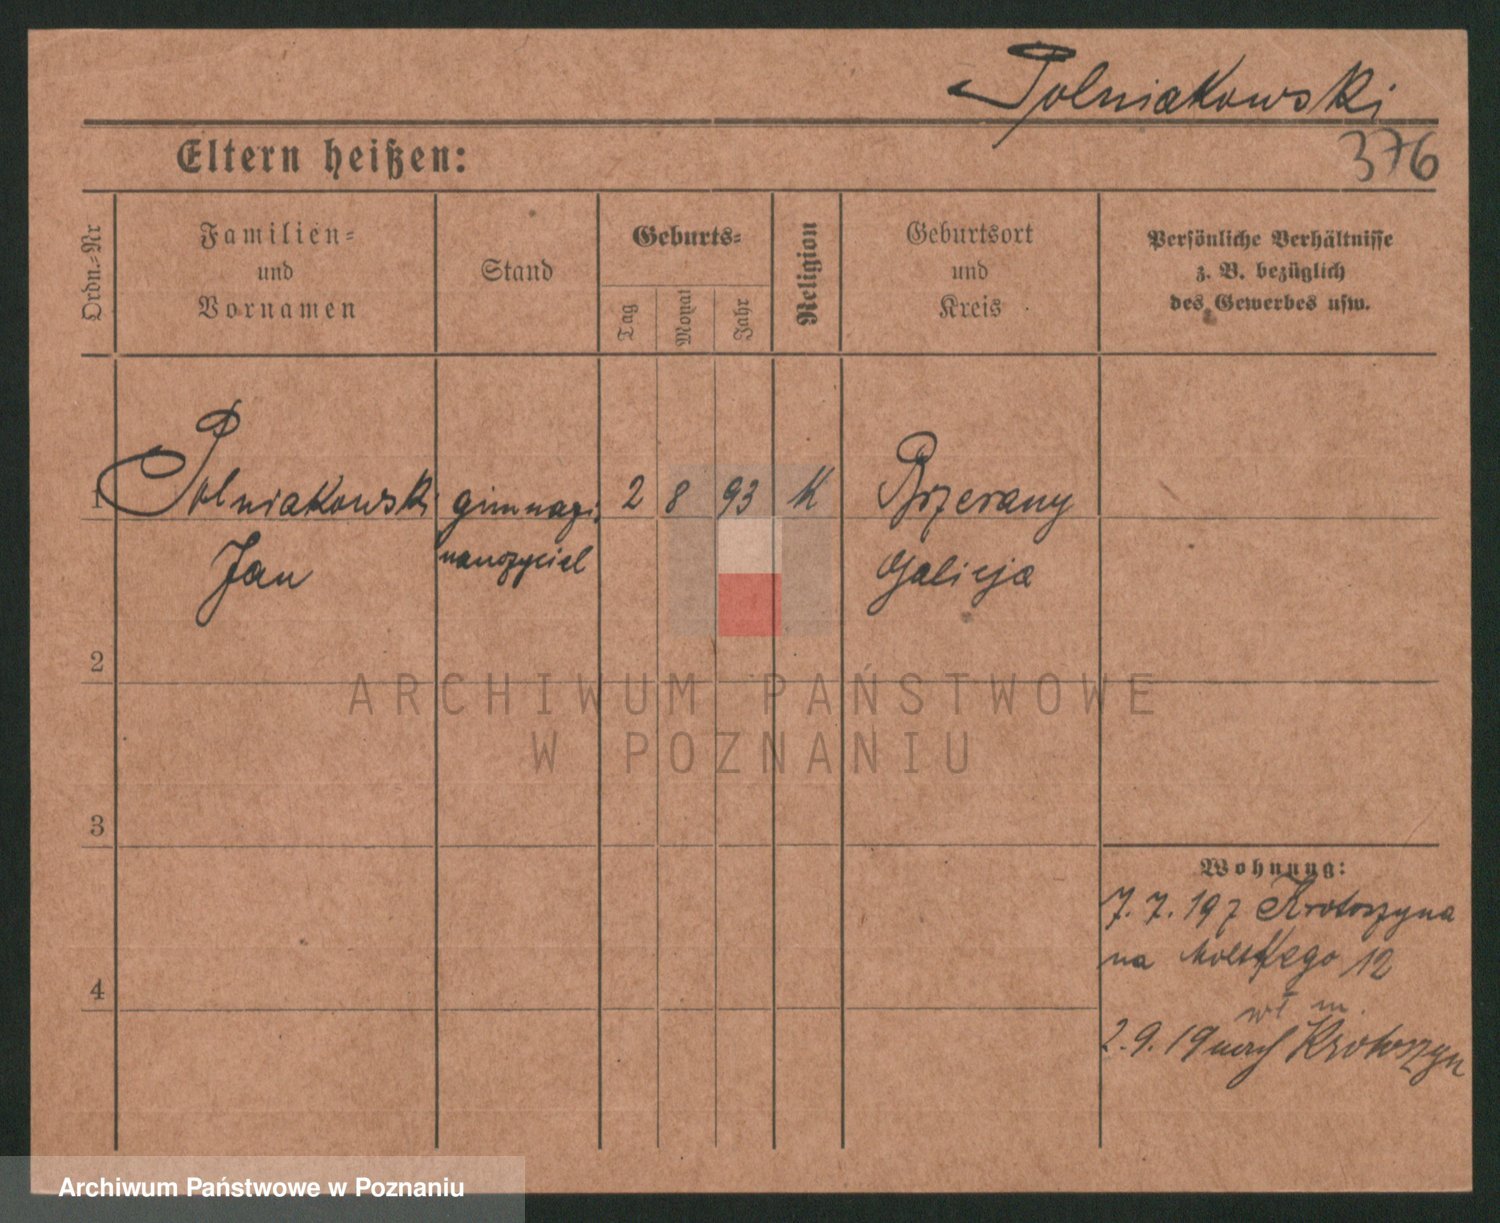 Polniakowski
376
Eltern heißen:
Ordn.-Nr
Familien-
und
Vornamen
Stand
Geburts-
Tag
Monat
Jahr
Religion
Geburtsort
und
Kreis
Persönliche Verhältnisse
z. B. bezüglich
des Gewerbes usw.
1 Polniakowski gimnazj. 2 8 93 K Brzerany
Jan nauczyciel Galicja
2
ARCHIWUM PAŃSTWOWE
W POZNANIU
3
Wohnung:
7.7.19 z Krotoszyna
na Moltkego 12
4
wł m.
2.9.19 nach Krotoszyn
Archiwum Państwowe w Poznaniu